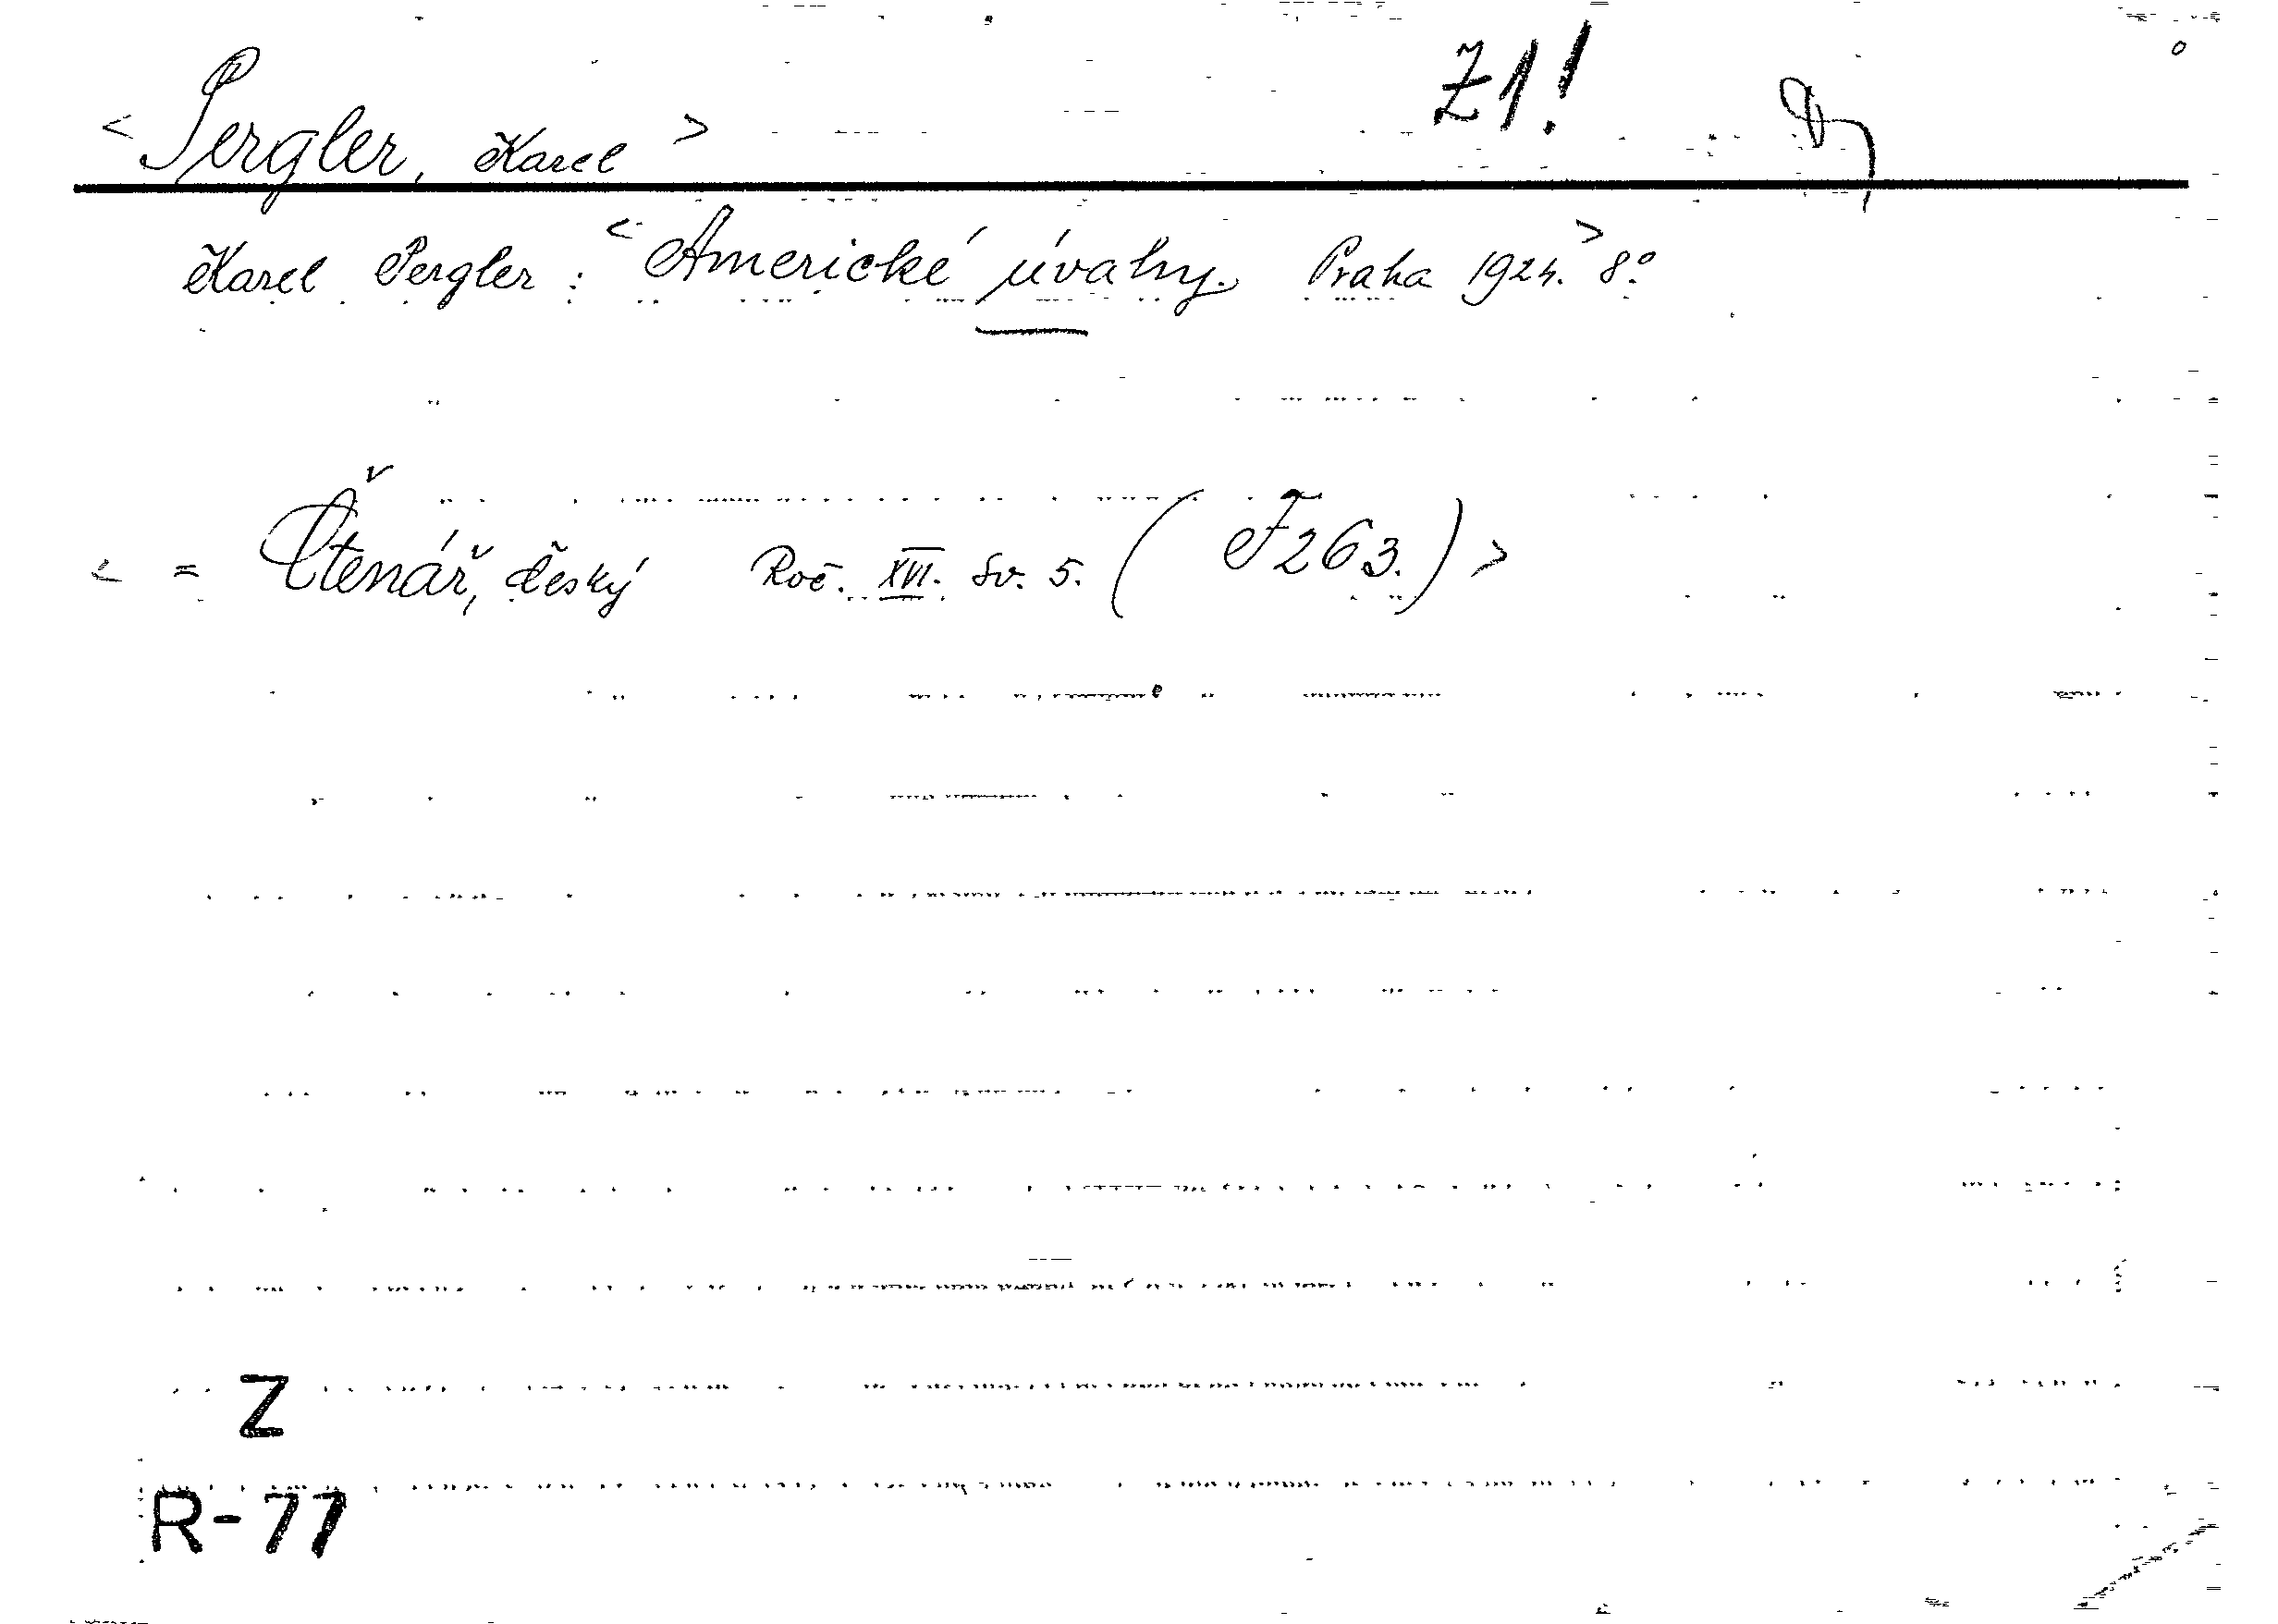 Z1!
< Pergler, Karel >
Karel Pergler: < Americké úvahy. Praha 1924. > 8°.
< = Čtenář, český Roč. XVI. Sv. 5. (F 263.) >
Z
R-77